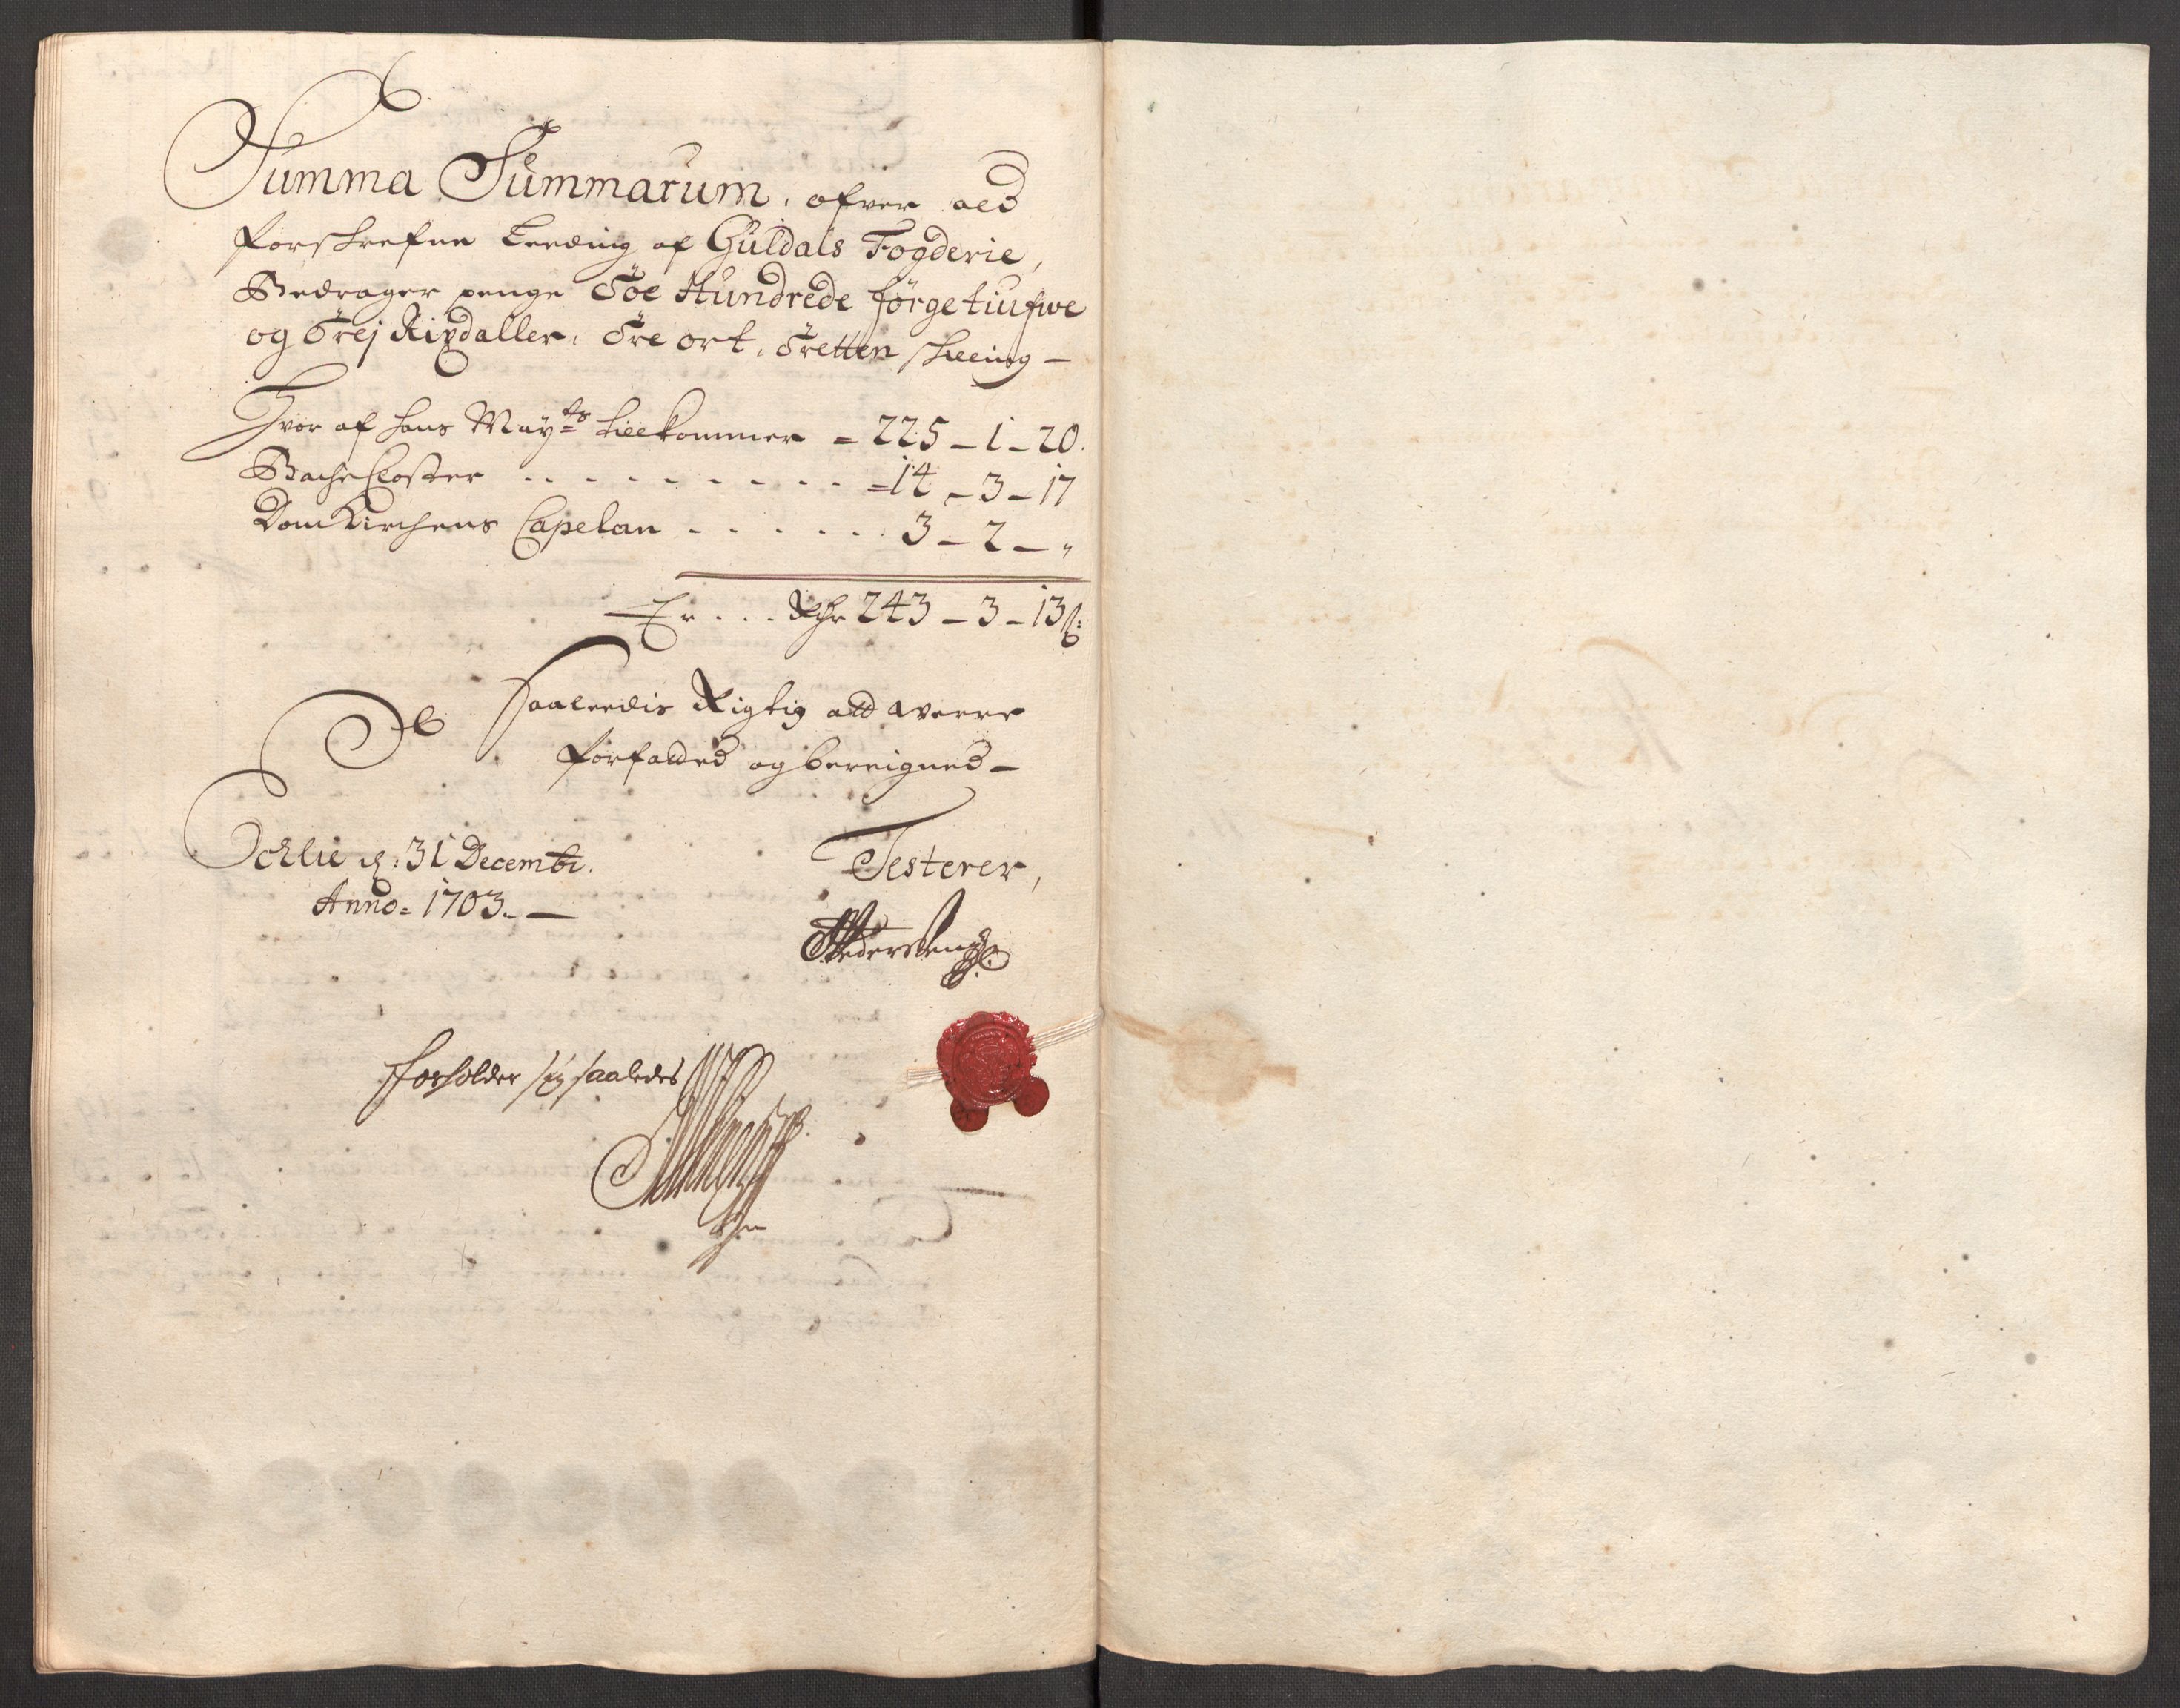 Summa Summarum, ofver ald
forskrefne Leeding af Guldals Fogderie,
Bedrager penge Toe Hundrede förgetiufwe
og Trej Rixdaller, Tre ort, Tretten skilling –
Hvor af hans Mayts tillkommer = 225 – 1 – 20.
BacheCloster . . . . . . . . . = 14 – 3 – 17
DomKirchens Capelan . . . . . . 3 – 2 – "
Er . . . Rdr 243 – 3 – 13 s:
Saaleedis Rigtig att were
forfalded og bereigned –
Ochlie d: 31 Decembr.
Anno = 1703. –
Testerer,
Forholder sig saaledes